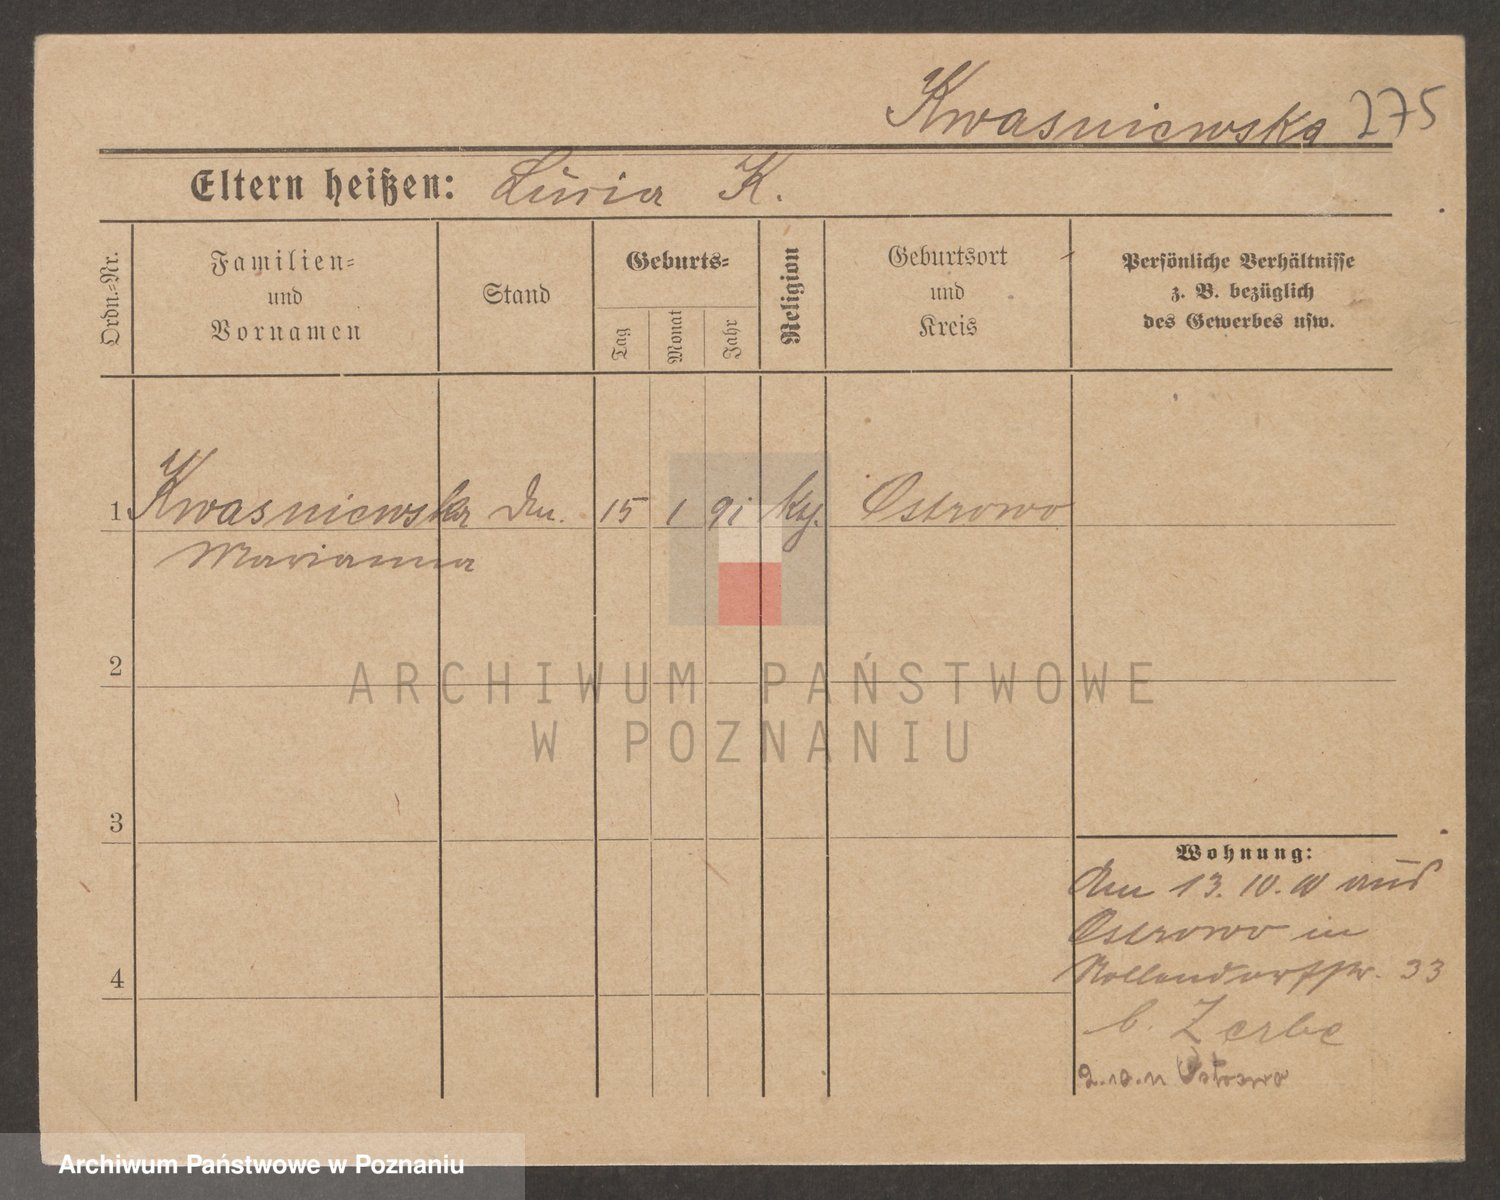 Kwasniewska 275
Eltern heißen: Luzia K.
Ordn.-Nr.
Familien-
und
Vornamen
Stand
Geburts-
Tag
Monat
Jahr
Religion
Geburtsort
und
Kreis
Persönliche Verhältnisse
z. B. bezüglich
des Gewerbes usw.
1 Kwasniewska 15 1 91 Ostrowo
Marianna
2
ARCHIWUM PAŃSTWOWE
W POZNANIU
3
Wohnung:
13. 10. 10 aus
Ostrowo in
Nollendorfstr. 33
4
b. Zerbe
Ostrowo
Archiwum Państwowe w Poznaniu